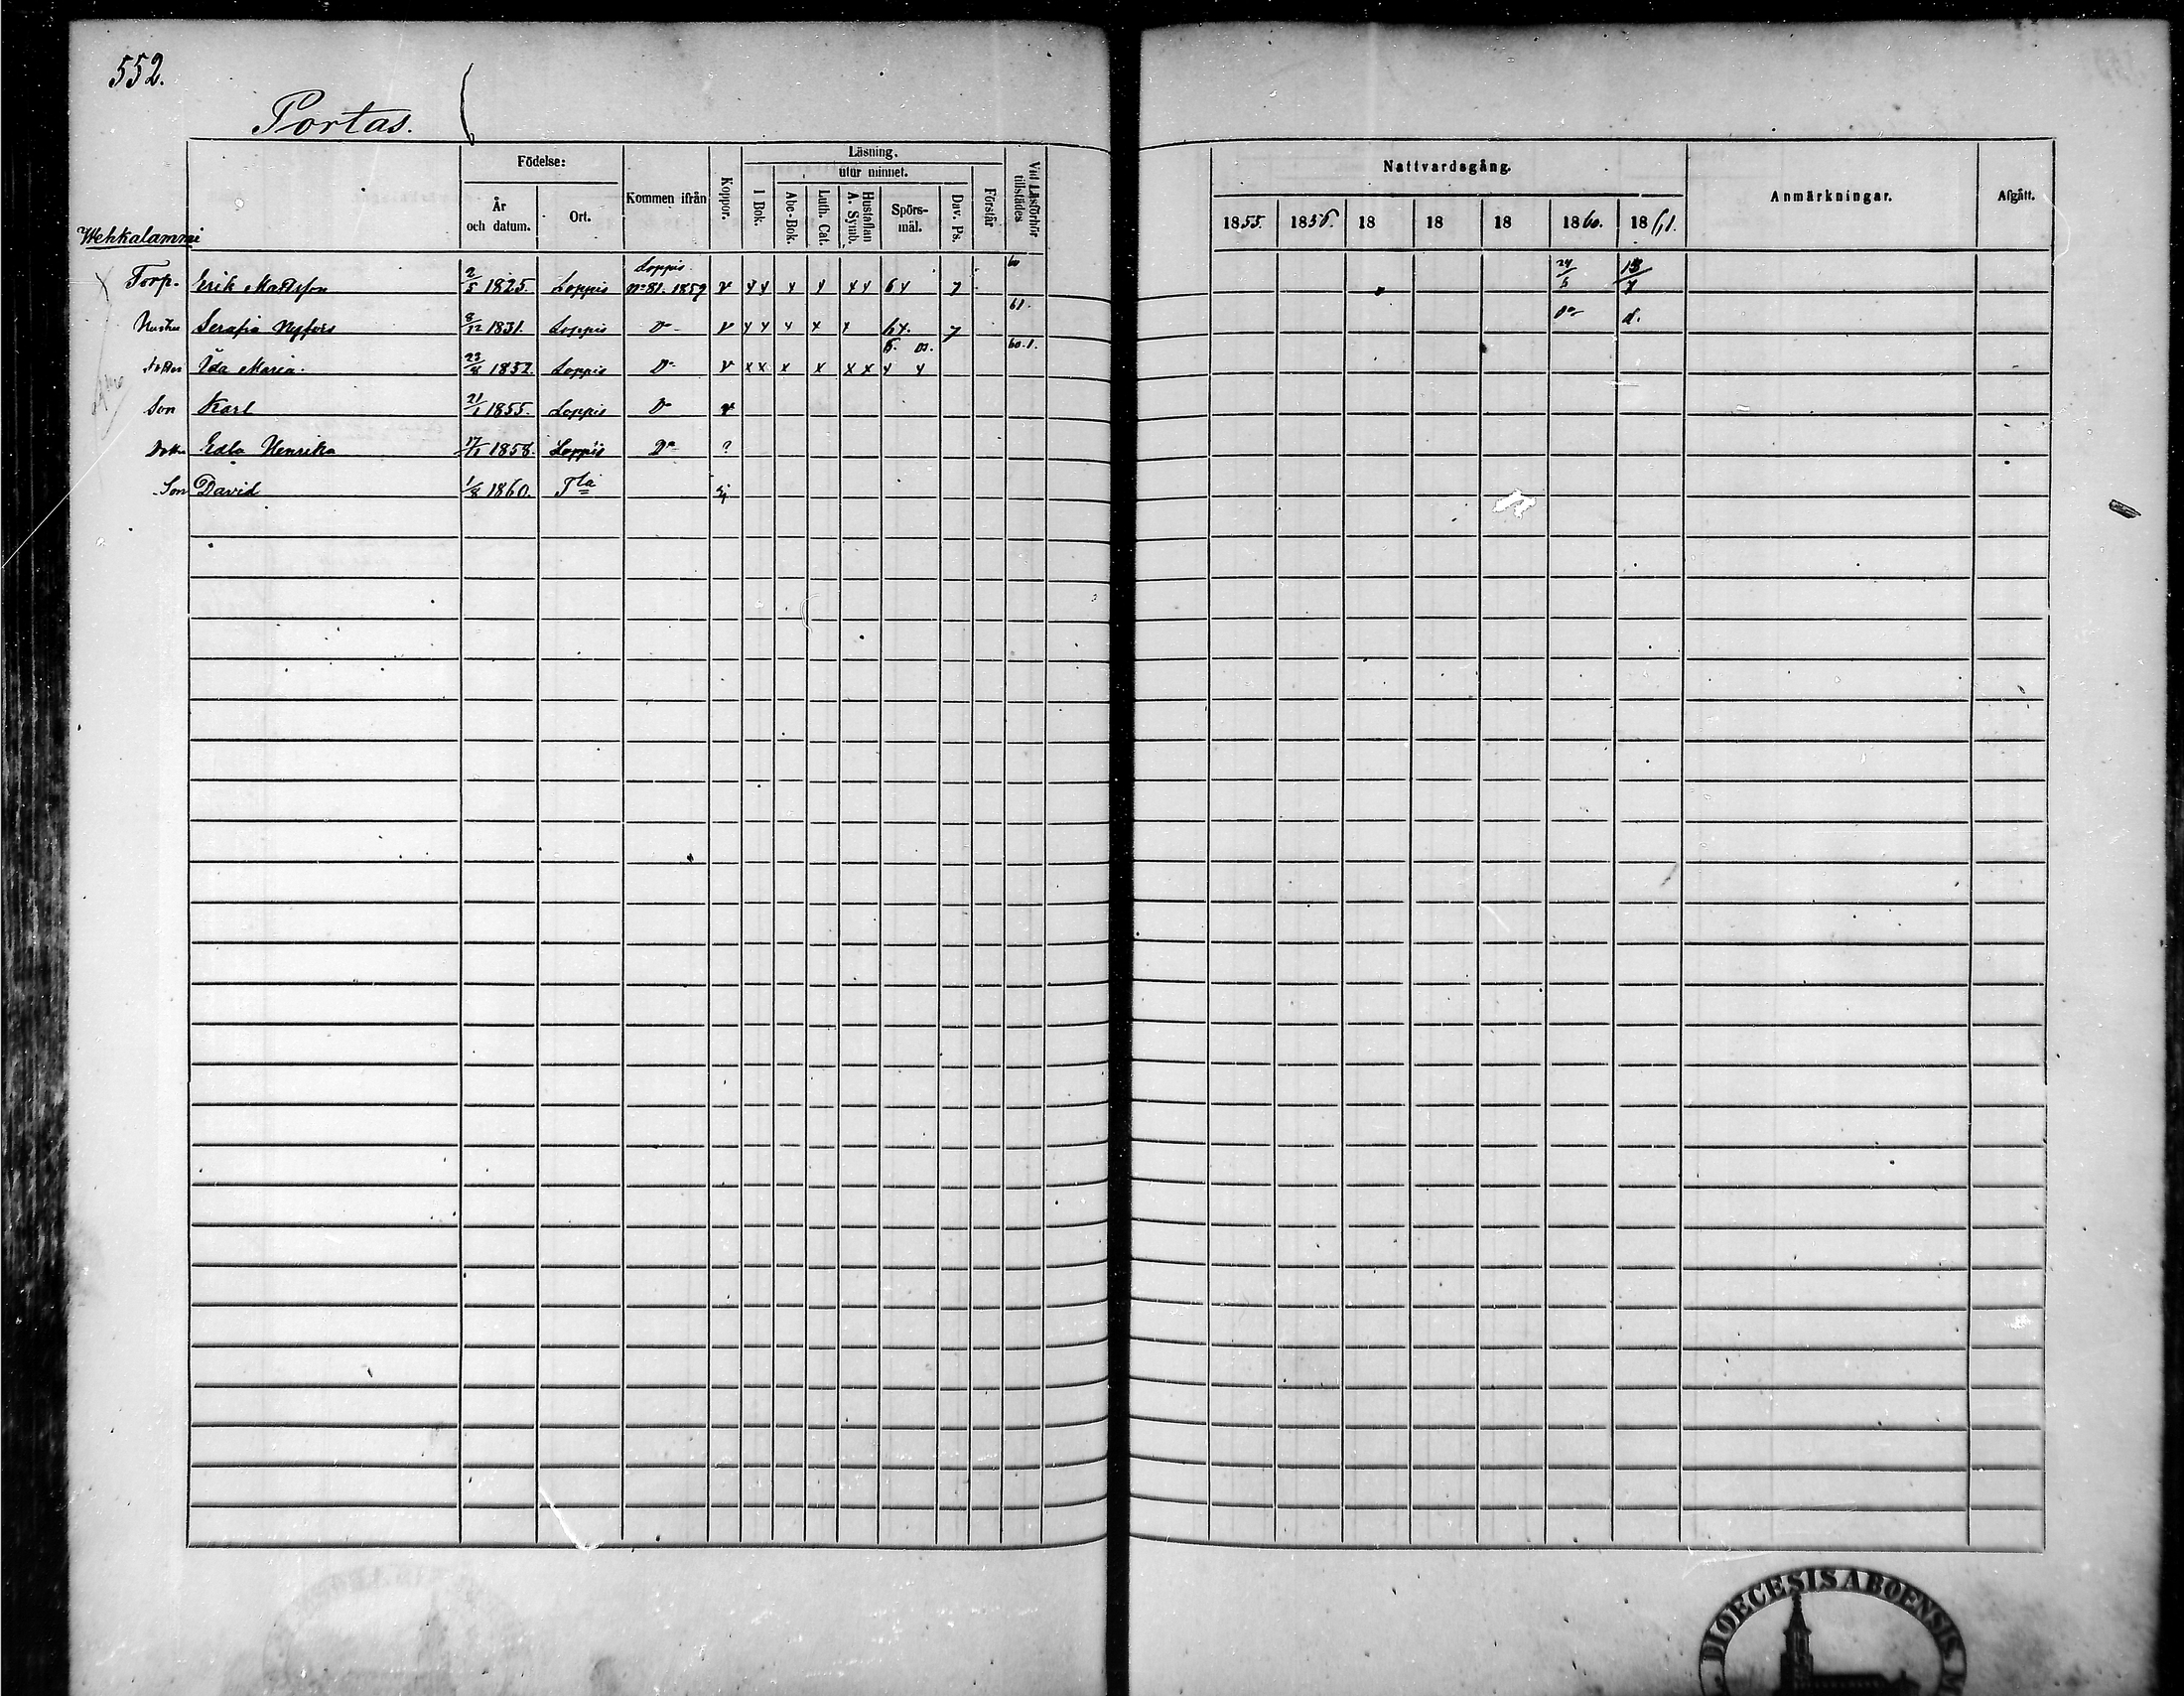 552.
Portas.
Födelse: Kommen ifrån Koppor. Läsning. Vid Läsförhör tillstädes Nattvardsgång. Anmärkningar. Afgått.
utur minnet.
År och datum. Ort. I Bok. Abc-Bok. Luth. Cat. Hustaflan A. Symb. Spörsmål. Dav. Ps. Förstår 1855. 1856. 18 18 18 1860. 1861.
Wehkalammi
Torp. Erik Mattsson 2/5 1825. Loppis Loppis No 81. 1859 v xx x x xx 6x 7 60 24/5 13/7
Hustru Serafia Nyfors 8/12 1831. Loppis Do v xx x x x 6x. 7 61. Do d.
Ida Maria 23/8 1852. Loppis Do v xx x x xx x x 60.1.
Son Karl 21/1 1855. Loppis Do v
Edla Henrika 17/1 1858. Loppis Do ?
Son David 1/8 1860. Tla ej
DIOECESIS ABOENSIS